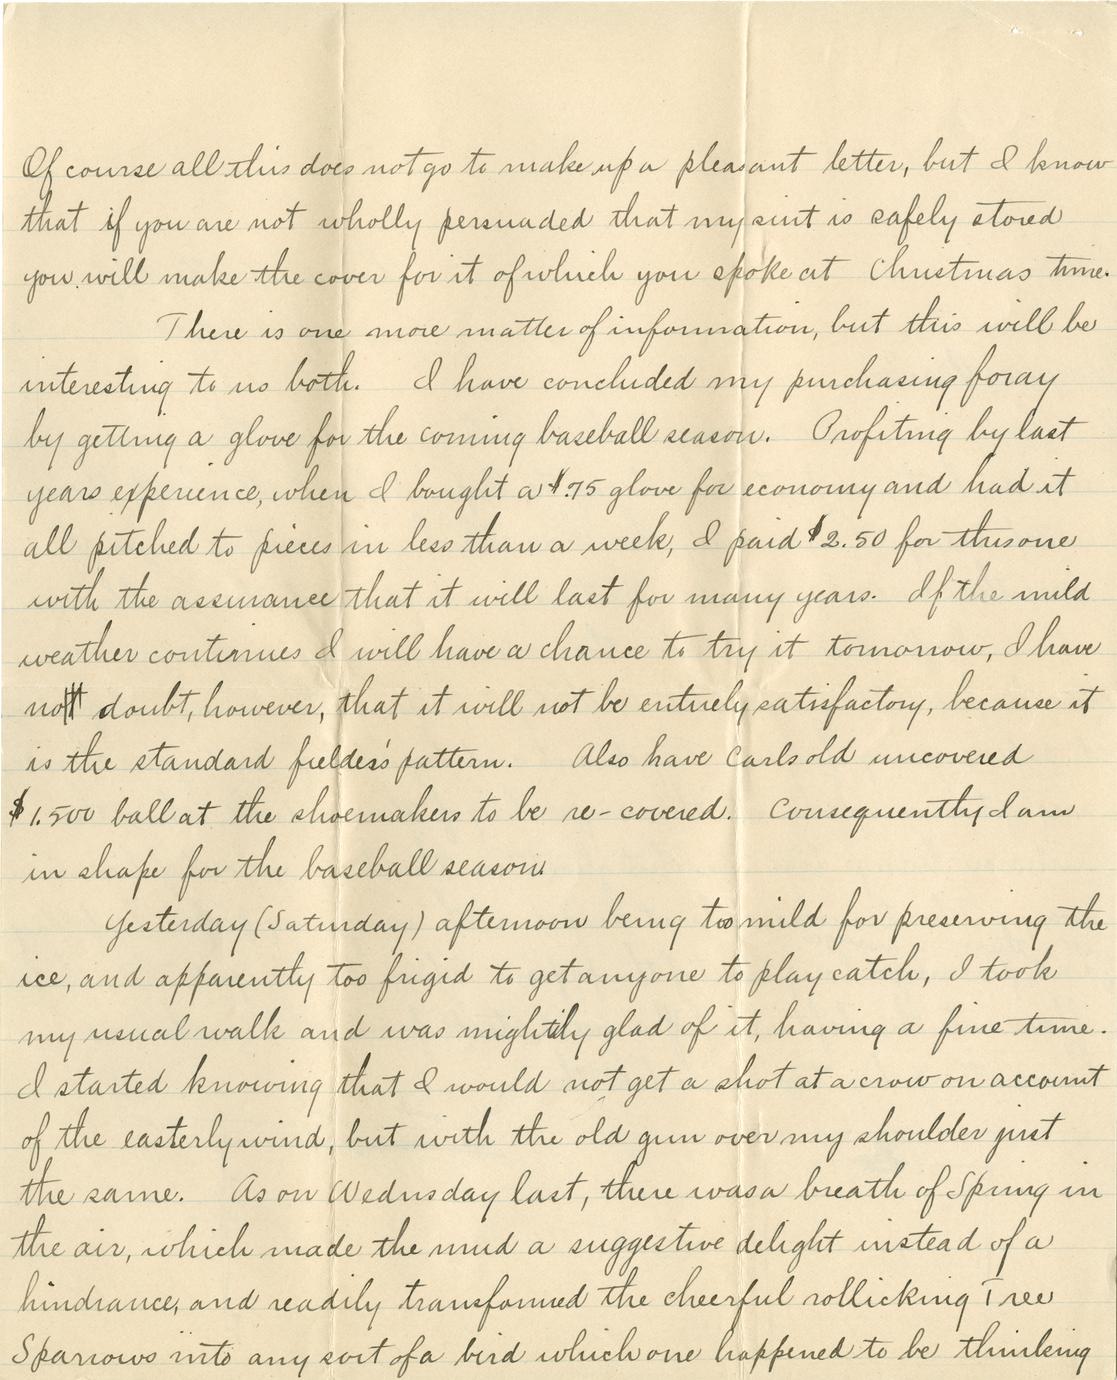 Of course all this does not go to make up a pleasant letter, but I know
that if you are not wholly persuaded that my suit is safely stored
you will make the cover for it of which you spoke at Christmas time.
There is one more matter of information, but this will be
interesting to us both. I have concluded my purchasing foray
by getting a glove for the coming baseball season. Profiting by last
years experience, when I bought a $.75 glove for economy and had it
all pitched to pieces in less than a week, I paid $2.50 for this one
with the assurance that it will last for many years. If the mild
weather continues I will have a chance to try it tomorrow, I have
no doubt, however, that it will not be entirely satisfactory, because it
is the standard fielder's pattern. Also have Carls old uncovered
$1.500 ball at the shoemakers to be re-covered. Consequently I am
in shape for the baseball season.
Yesterday (Saturday) afternoon being too mild for preserving the
ice, and apparently too frigid to get anyone to play catch, I took
my usual walk and was mightily glad of it, having a fine time.
I started knowing that I would not get a shot at a crow on account
of the easterly wind, but with the old gun over my shoulder just
the same. As on Wednsday last, there was a breath of Spring in
the air, which made the mud a suggestive delight instead of a
hindrance, and readily transformed the cheerful rollicking Tree
Sparrows into any sort of a bird which one happened to be thinking